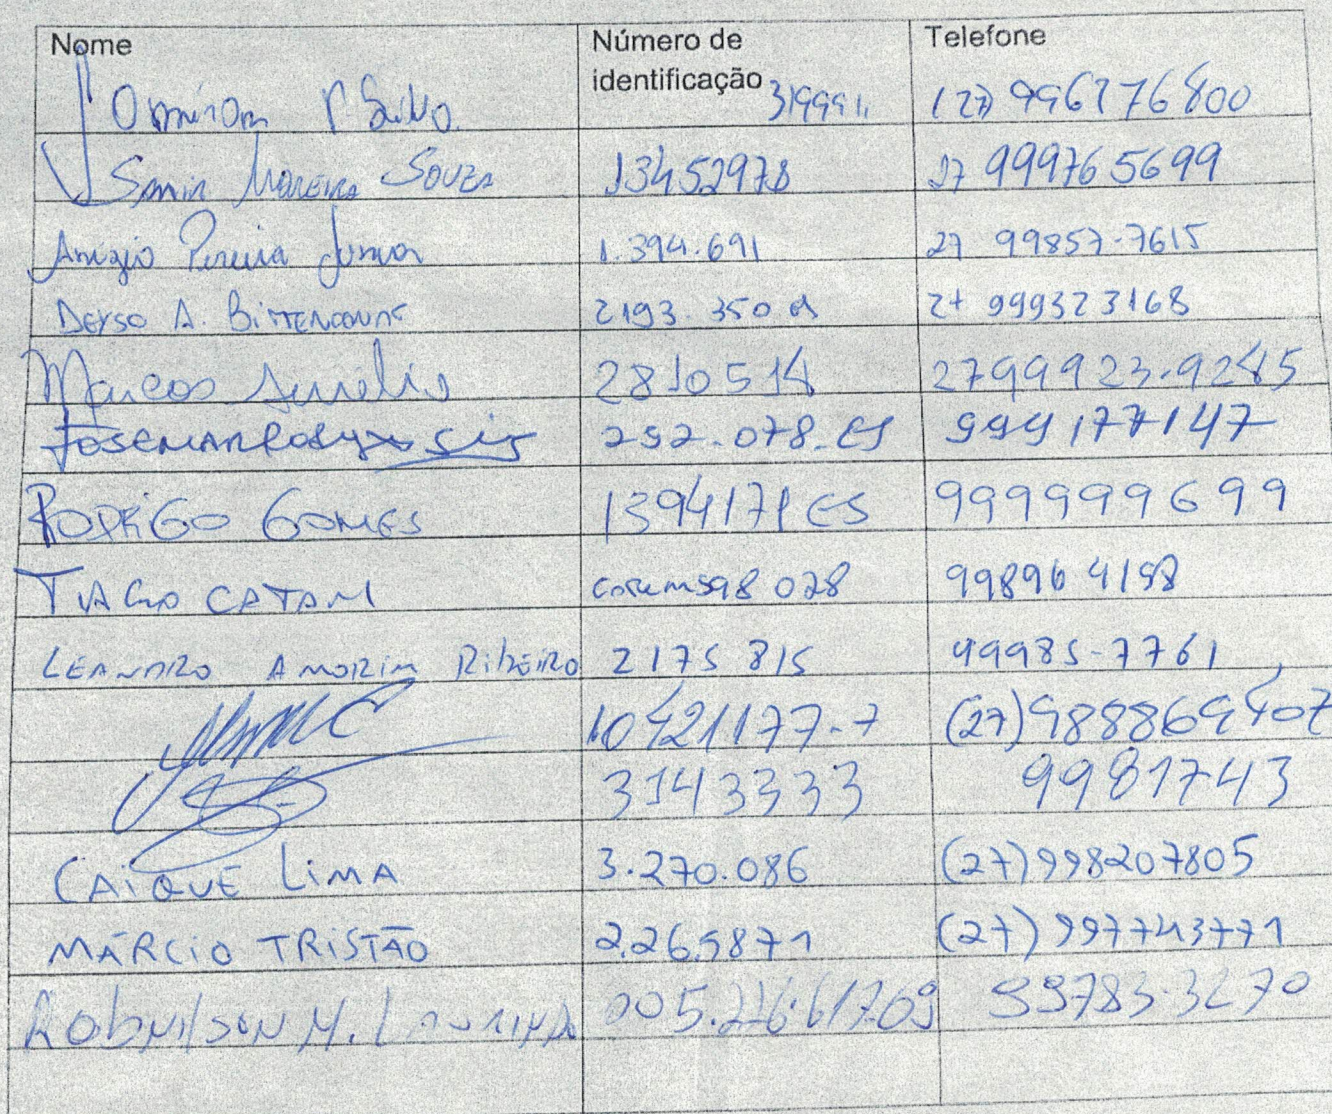 Nome Número de identificação Telefone
319991 (27) 996276800
Samir Moreira Souza 13452978 27 999765699
Anizio Pereira Junior 1.394.691 27 99857-7615
Deyso A. Bittencourt 2193.350 27 999323168
Marcos Aurélio 2810514 2799923-9245
292-078-ES 999177147
RODRIGO GOMES 1394171 ES 999999699
TIAGO CATAM 028 998964198
LEANDRO AMORIM RibEiRO 2175 815 99985-7761
10421177-7 (27)988869407
3143333 9981743
CAIQUE LIMA 3.270.086 (27)998207805
MÁRCIO TRISTÃO 2.265871 (27)997743771
M. 99783-3270